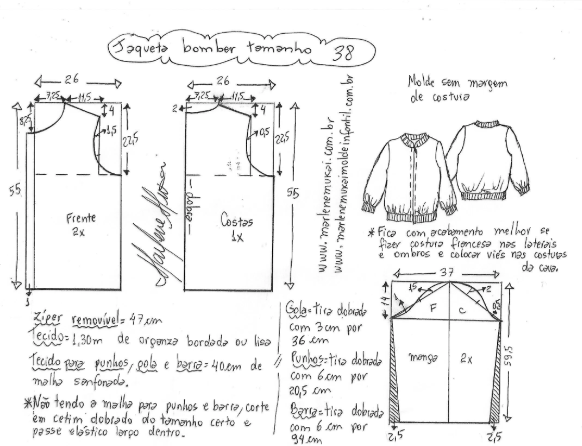 Jaqueta bomber tamanho 38
26
7,25 11,5
4
8,25
1,5
22,5
55
Frente
2x
1
26
7,25 11,5
2
4
0,5
22,5
55
dobra
Costas
1x
Marlene Mukai
www.marlenemukai.com.br
www.marlenemukaimoldeinfantil.com.br
Molde sem margem
de costura
*Fica com acabamento melhor se
fizer costura francesa nas laterais
e ombros e colocar viés nas costuras
da cava.
37
14
1,5
2
F
C
manga
2x
59,5
2,5
2,5
Zíper removível = 47 cm
Tecido = 1,30m de organza bordada ou lisa
Tecido para punhos, gola e barra = 40 cm de
malha sanfonada.
*Não tendo a malha para punhos e barra, corte
em cetim dobrado do tamanho certo e
passe elástico largo dentro.
Gola = tira dobrada
com 3 cm por
36 cm
Punhos = tira dobrada
com 6 cm por
20,5 cm
Barra = tira dobrada
com 6 cm por
94 cm